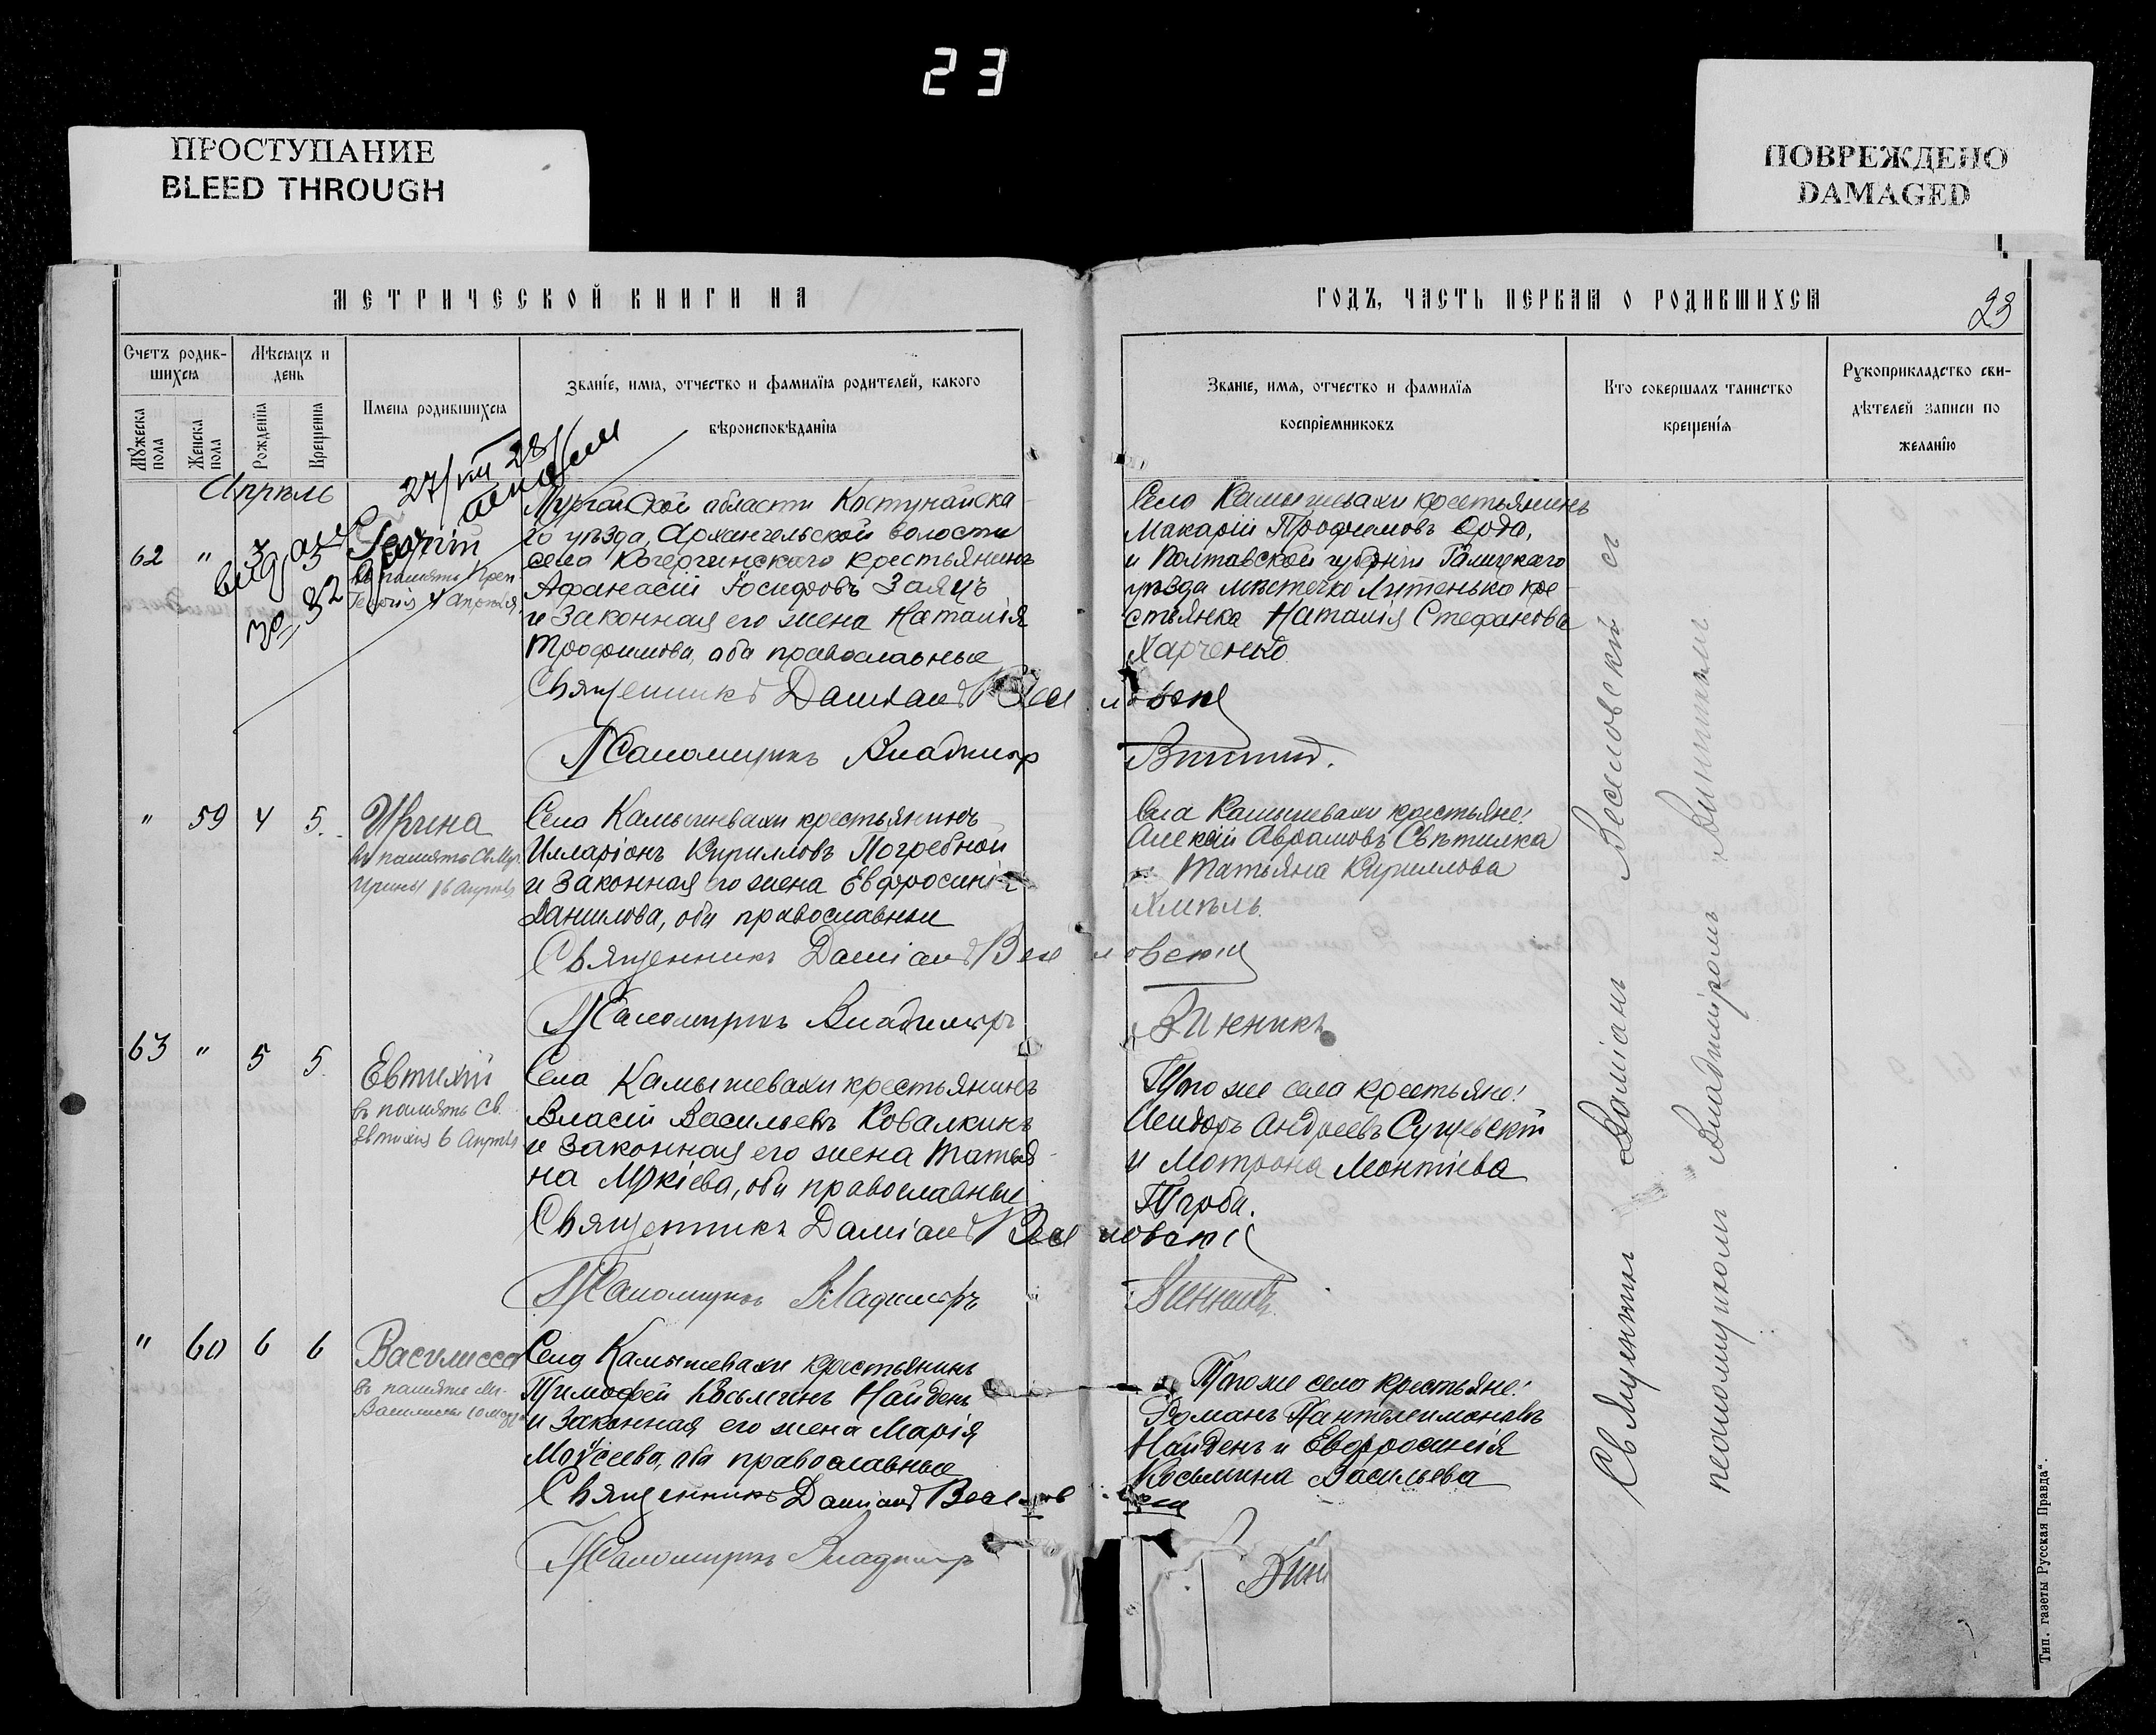 23
ПРОСТУПАНИЕ
BLEED THROUGH
ПОВРЕЖДЕНО
DAMAGED
МЕТРИЧЕСКОЙ КНИГИ НА
ГОДЪ, ЧАСТЬ ПЕРВАЯ О РОДИВШИХСЯ
23
Счетъ родив-
шихся
Мѣсяцъ и
день
Мужеска
пола
Женска
пола
Рожденія
Крещенія
Имена родившихся
Званіе, имя, отчество и фамилія родителей, какого
вѣроисповѣданія
Званіе, имя, отчество и фамилія
воспріемниковъ
Кто совершалъ таинство
крещенія
Рукоприкладство сви-
дѣтелей записи по
желанію
Апрѣль
27/VIII 28
62 " 3 5
Георгій
въ память Преп
Георгія 4 Апрѣля
Тургайской области Кустунайска
го уѣзда, Архангельской волости
села Кочергинскаго крестьянинъ
Афанасій Іосифовъ Заяцъ
и законная его жена Наталія
Трофимова, оба православные
Священникъ Даміанъ Веселовскій
Псаломщикъ Владиміръ
Села Камышевахи крестьянинъ
Макарій Трофимовъ Орда,
и Полтавской губерніи Гадяцкаго
уѣзда мѣстечко Лютенько кре-
стьянка Наталія Стефанова
Харченко
" 59 4 5.
Ирина
въ память Св. Муч.
Ирины 16 Апрѣля
Села Камышевахи крестьянинъ
Илларіонъ Кирилловъ Погребной
и законная его жена Евфросинія
Данилова, оба православные
Священникъ Даміанъ Веселовскій
Псаломщикъ Владиміръ Винникъ
Села Камышевахи крестьяне:
Алексій Аврамовъ Свѣтилка
и Татьяна Кириллова
Хмѣль.
63 " 5 5
Евтихій
въ память Св.
Евтихія 6 Апрѣля
Села Камышевахи крестьянинъ
Власій Васильевъ Ковалкинъ
и законная его жена Татья-
на Мокіева, оба православные
Священникъ Даміанъ Веселовскій
Псаломщикъ Владиміръ Винникъ
Того же села крестьяне:
Исидоръ Андреевъ Сущевскій
и Мотрона Леонтіева
" 60 6 6
Василисса
въ память
Села Камышевахи крестьянинъ
Тимофей Косьминъ Найденъ
и законная его жена Марія
Моѵсеева, оба православные
Священникъ Даміанъ Веселовскій
Псаломщикъ Владиміръ Вин
Того же села крестьяне:
Романъ Пантелеимоновъ
Найденъ и Евфросинія
Косьмина Васильева
Священникъ Даміанъ Веселовскій съ
псаломщикомъ Владиміромъ Винникомъ
Тип. газеты Русская Правда".